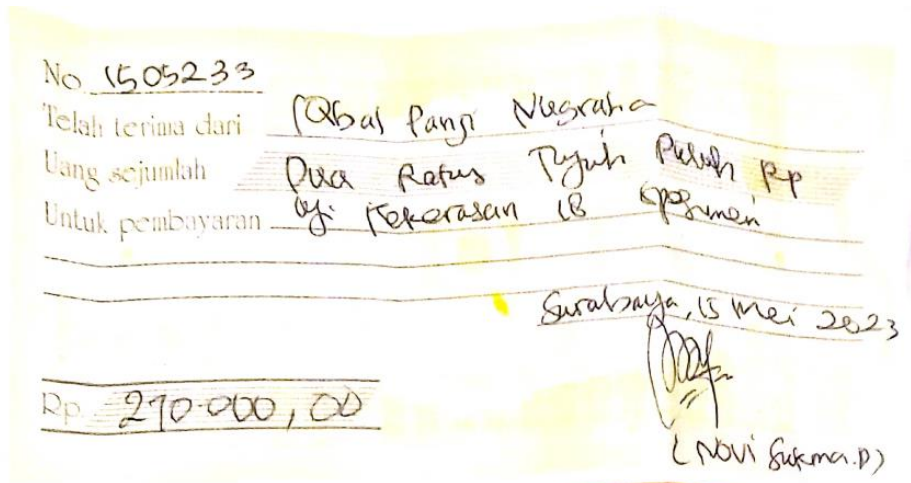 No. 1505233
Telah terima dari Iqbal Panji Nugraha
Uang sejumlah Dua Ratus Tujuh Puluh Rp
Untuk pembayaran Uji Kekerasan 18 Spesimen
Surabaya, 15 Mei 2023
Rp. 270.000,00
(Novi Sukma.D)